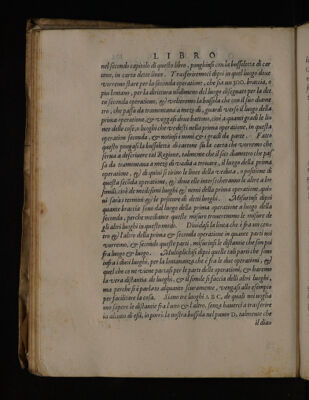 LIBRO
nel secondo capitolo di questo libro, ponghinsi con la bossoletta di car
tone, in carta dette linee. Trasferitemoci dipoi in quel luogo dove
vorremo stare per la seconda operatione, che sia un 300. braccia, o
piu lontano, per la dirittura del luogo disegnato per la det
ta seconda operatione, & volteremo la bossola che con il suo diame
tro, che passa da tramontana a mezo dì, guardi verso il luogo della
prima operatione, & veggasi dove battono, cioè a quanti gradi le li
nee delle cose, o luoghi che vedesti nella prima operatione, in questa
operation seconda, & notinsi nomi & i gradi da parte. Fatto
questo pongasi la bossoletta di cartone su la carta che vorremo che
serva a descrivere tal Regione, talmente che il suo diametro che pas
si da tramontana a mezo dì vadia a trovare, il luogo della prima
operatione, & di quivi si tirino le linee della veduta, o positione di
questa seconda operatione, & dove elle intersecheranno le altre a lor
simili, cioè de medesimi luoghi & nomi della prima operatione, qui
vi saria i termini & le positione di detti luoghi. Misurisi dipoi
quante braccia sono dal luogo della prima operatione a luogo della
seconda, perche mediante quelle misure troverremo le misure de
gli altri luoghi in questo modo. Dividasi la linea che è fra un cen
tro & l'altro della prima & seconda operatione in quante parti noi
vorremo, & secondo queste parti, misurinsi le distantie che son poi
fra luogo & luogo. Multiplichisi dipoi quelle tali parti che sono
infra i dieti luoghi, per la lontananza che è fra le due operationi, &
quel che ce ne viene partasi per le parti delle operationi, & haremo
la vera distantia de luoghi, & il simile si faccia delli altri luoghi,
ma perche si è parlato alquanto scuramente, vengasi allo esempio
per facilitare la cosa. Siano tre luoghi A B C, de quali noi voglia
mo sapere le distantie fra l'uno & l'altro, senza haverci a transferire
in alcuno di essi, io porrò la nostra bossola nel punto D, talmente che
il dia=